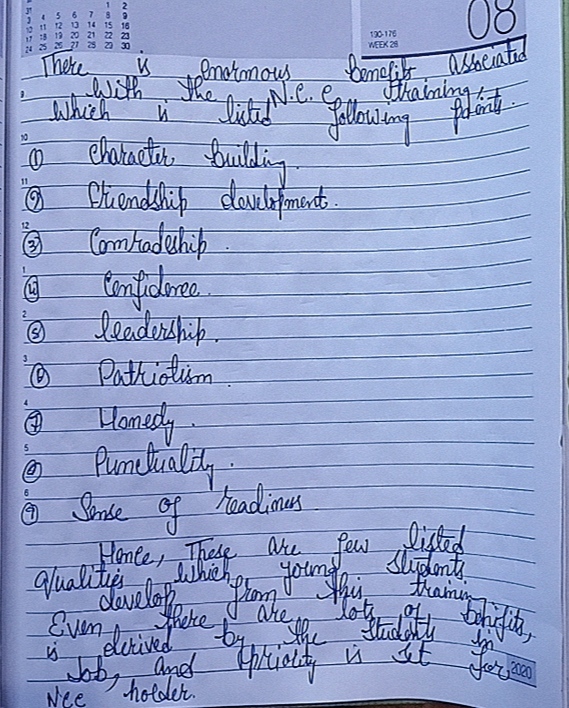 31 1 2
3 4 5 6 7 8 9
10 11 12 13 14 15 16
17 18 19 20 21 22 23
24 25 26 27 28 29 30
08
190-176
WEEK 28
There is enormous benefit associated
9 with the N.C.C training,
which is listed following points.
10
① Character building.
11
② Friendship development.
12
③ Comradeship.
1
④ Confidence.
2
⑤ leadership.
3
⑥ Patriotism
4
⑦ Honedy.
5
⑧ Punctuality.
6
⑨ Sense of readiness.
Hence, These are few listed
qualities which young students
develop from this training
Even there are lots of benifits,
is derived by the students in
Job, and priority is set for
2020
NCC holder.